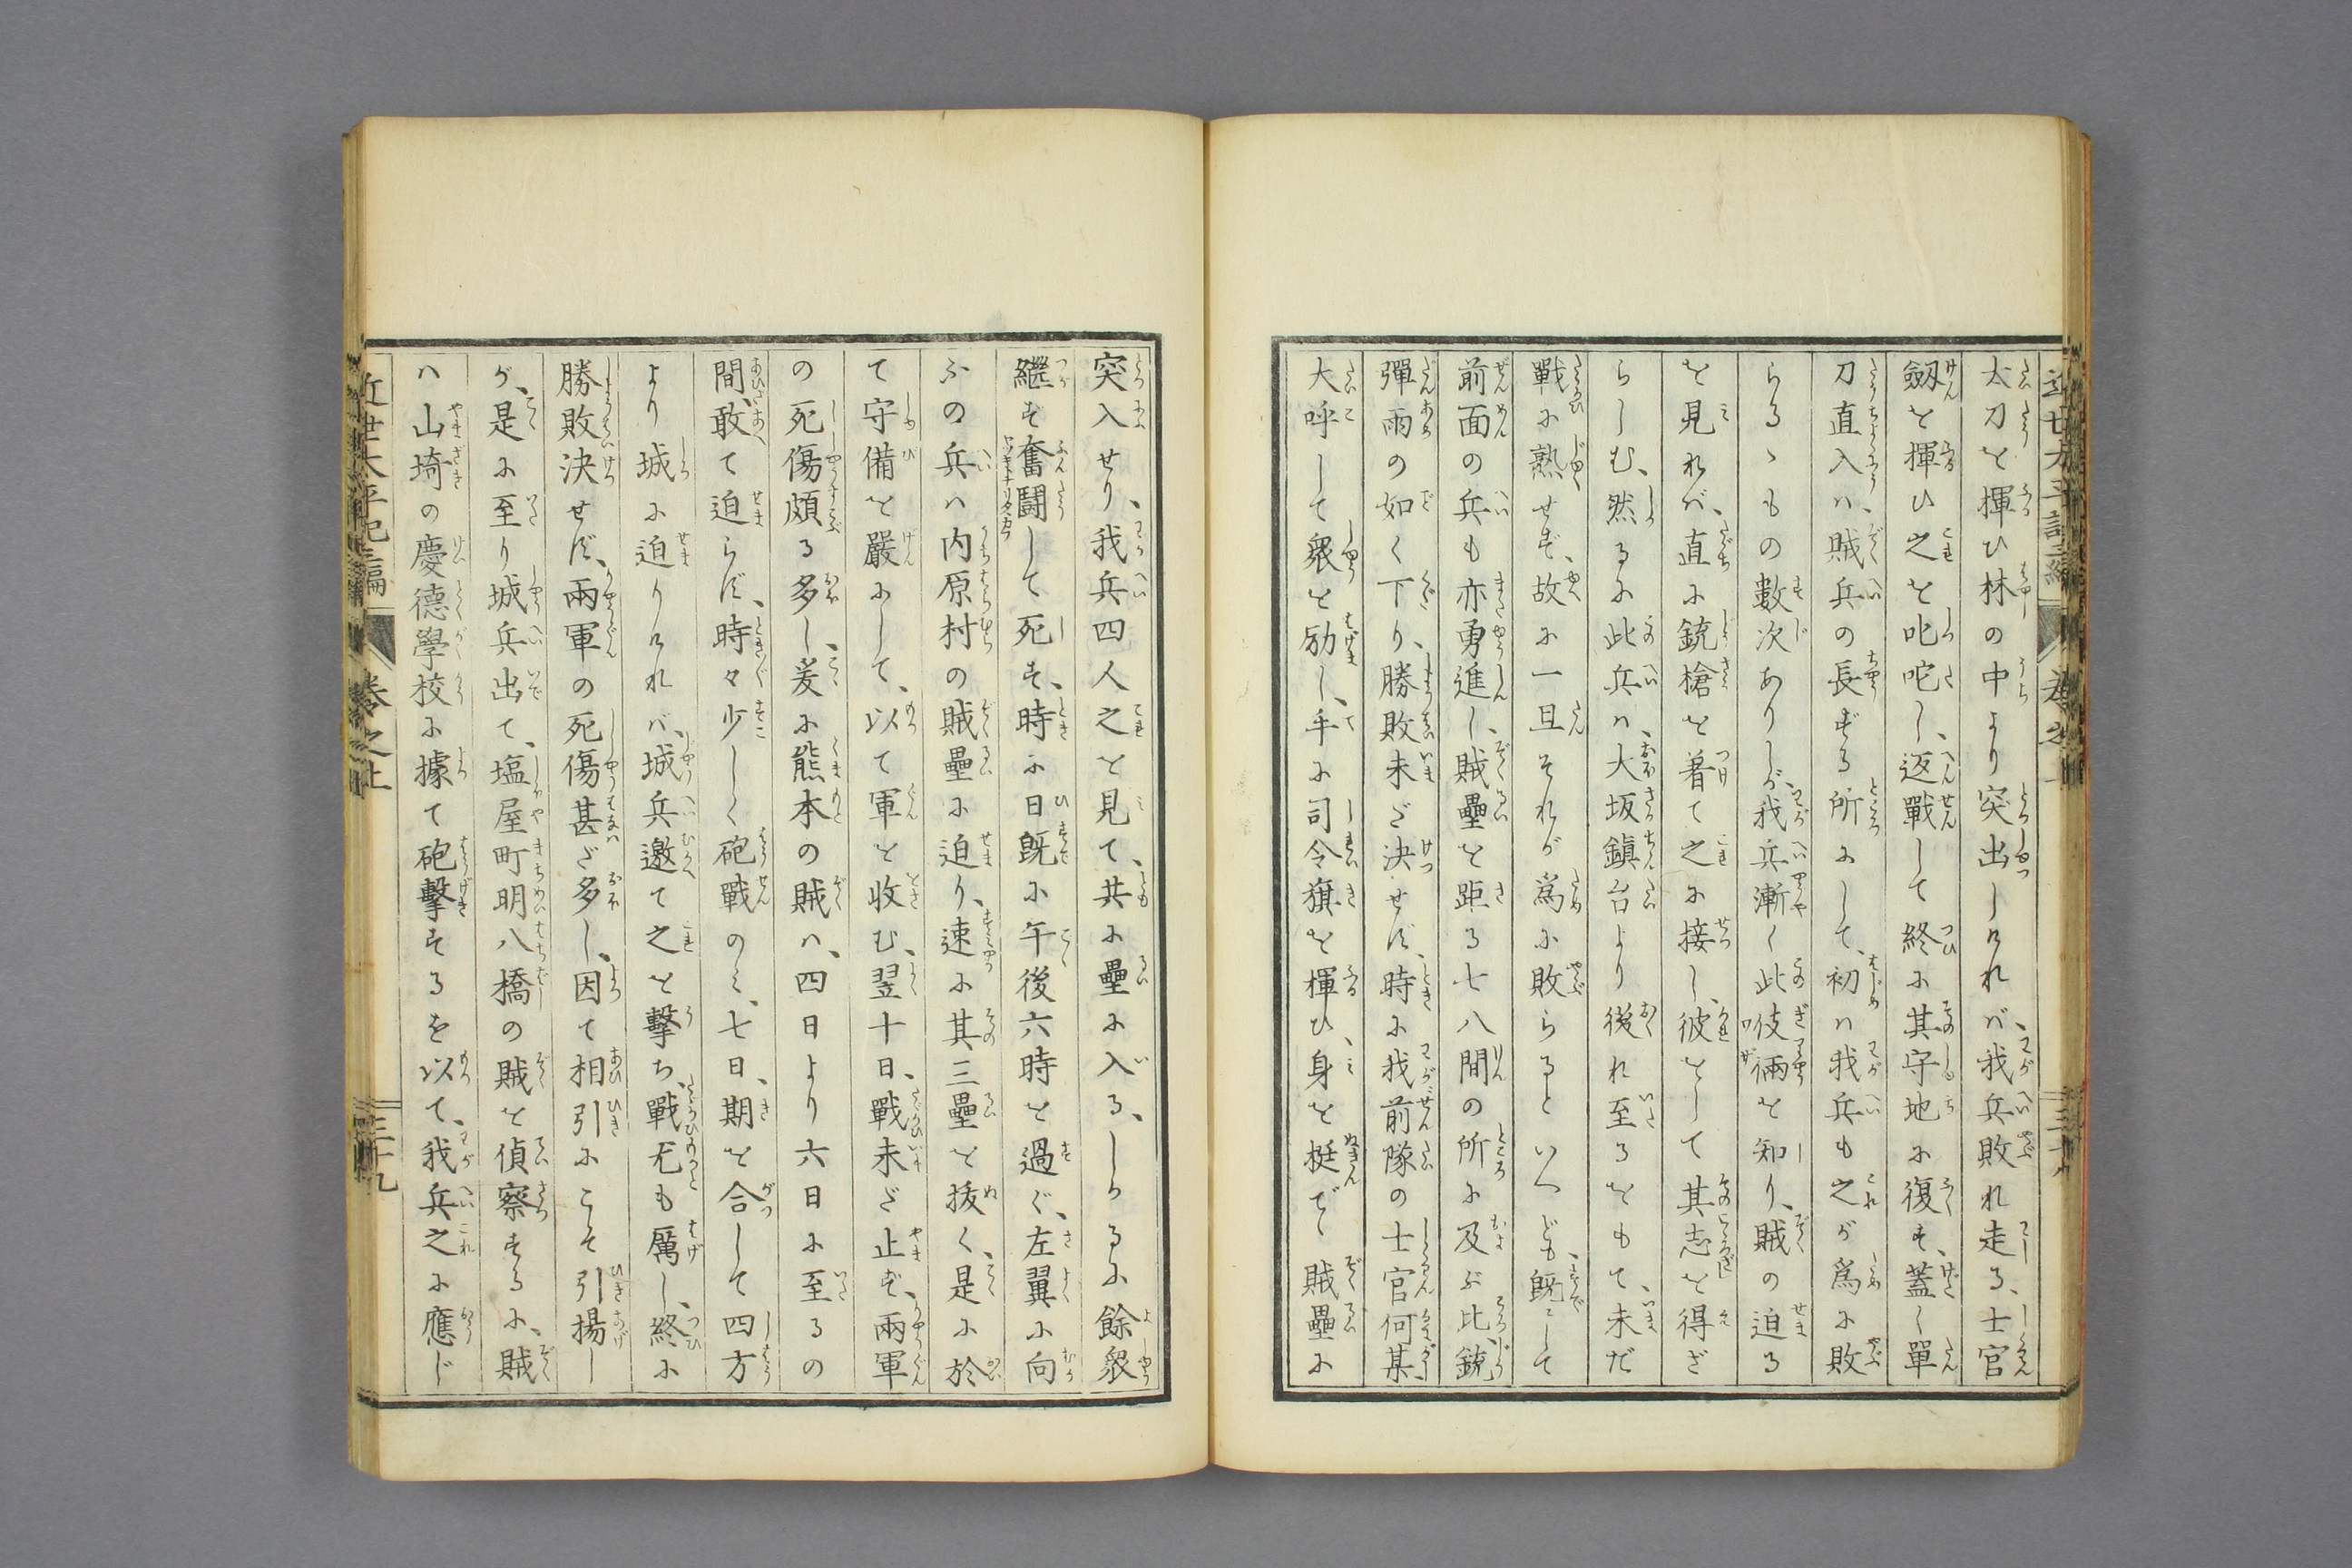 太刀を揮ひ林の中より突出しけれバ、我兵敗れ走る、士官
劔を揮ひ之を叱咤し、返戰して終に其守地に復す、蓋し單
刀直入ハ賊兵の長ずる所にして、初ハ我兵も之が爲に敗
らるゝもの數次ありしが、我兵漸く此伎倆を知り、賊の迫る
を見れバ、直に銃槍を着て之に接し、彼をして其志を得ざ
らしむ、然るに此兵ハ、大坂鎭台より後れ至るをもて、未だ
戰に熟せず、故に一旦それが爲に敗らるといへども、既にして
前面の兵も亦勇進し、賊壘を距る七八間の所に及ぶ比、銃
彈雨の如く下り、勝敗未ざ決せず、時に我前隊の士官何某、
大呼して衆を励し、手に司令旗を揮ひ、身を挺で賊壘に
突入せり、我兵四人之を見て、共に壘に入る、しかるに餘衆
繼ず奮闘して死す、時に日既に午後六時を過ぐ、左翼に向
ふの兵ハ内原村の賊壘に迫り、速に其三壘を拔く、是に於
て守備を嚴にして、以て軍を收む、翌十日、戰未ざ止ず、兩軍
の死傷頗る多し、爰に熊本の賊ハ、四日より六日に至るの
間、敢て迫らず、時々少しく砲戰のミ、七日、期を合して四方
より城に迫りけれバ、城兵邀て之を擊ち、戰尤も厲し、終に
勝敗決せず、兩軍の死傷甚ざ多し、因て相引にこそ引揚し
が、是に至り城兵出て、塩屋町明八橋の賊を偵察するに、賊
ハ山埼の慶德學校に據て砲擊するを以て、我兵之に應じ
近世太平記三編 卷之上 三十九